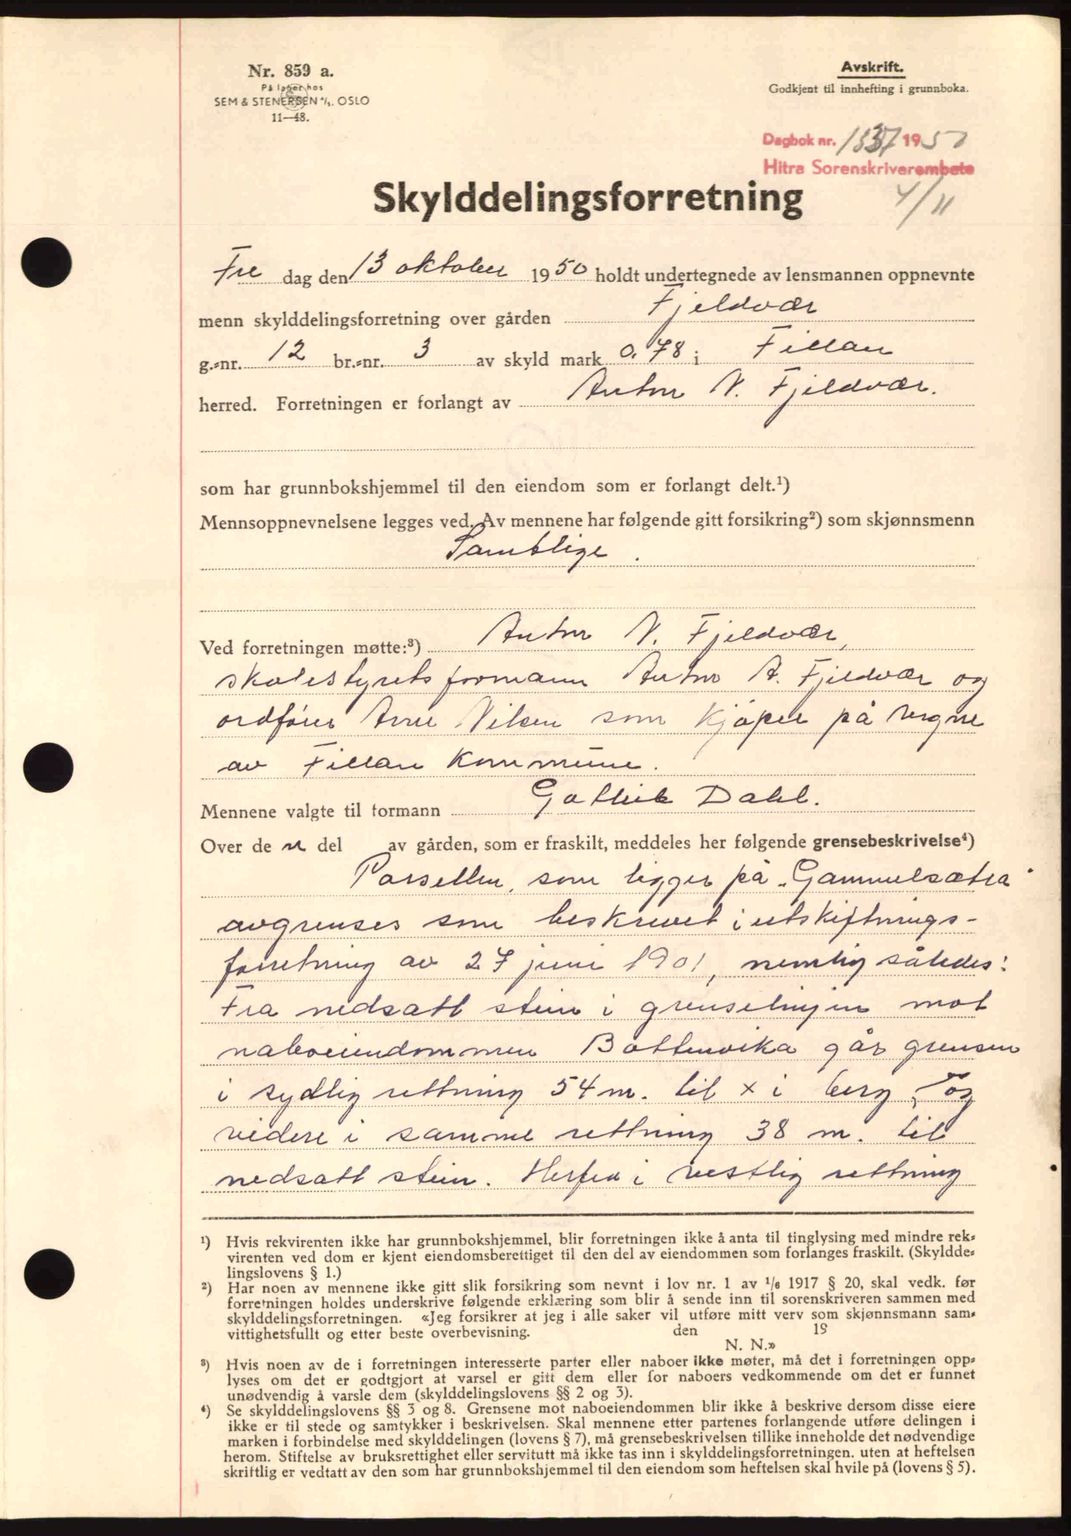 Nr. 859 a.
På lager hos
SEM & STENERSEN A/S. OSLO
11—48.
Avskrift.
Godkjent til innhefting i grunnboka.
Dagbok nr. 1537 1950
Hitra Sorenskriverembete
4/11
Skylddelingsforretning
Fre dag den 13 oktober 1950 holdt undertegnede av lensmannen oppnevnte
menn skylddelingsforretning over gården Fjeldvær
g.-nr. 12 br.-nr. 3 av skyld mark 0.78 i Fillan
herred. Forretningen er forlangt av Anton N. Fjeldvær.
som har grunnbokshjemmel til den eiendom som er forlangt delt.¹)
Mennsoppnevnelsene legges ved. Av mennene har følgende gitt forsikring²) som skjønnsmenn
Samtlige.
Ved forretningen møtte:³) Anton N. Fjeldvær,
skolestyrets formann Anton A. Fjeldvær og
ordfører Arne Nilsen som kjøper på vegne
av Fillan kommune.
Mennene valgte til formann Gotlieb Dahl.
Over de n del av gården, som er fraskilt, meddeles her følgende grensebeskrivelse⁴)
Parsellen, som ligger på „Gammelsætra"
avgrenses som beskrevet i utskiftnings-
forretning av 27 juni 1901, nemlig således:
Fra nedsatt stein i grenselinjen mot
naboeiendommen Bottenvika går grensen
i sydlig rettning 54 m. til x i berg, og
videre i samme rettning 38 m. til
nedsatt stein. Herfra i vestlig rettning
¹) Hvis rekvirenten ikke har grunnbokshjemmel, blir forretningen ikke å anta til tinglysing med mindre rek-
virenten ved dom er kjent eiendomsberettiget til den del av eiendommen som forlanges fraskilt. (Skyldde-
lingslovens § 1.)
²) Har noen av mennene ikke gitt slik forsikring som nevnt i lov nr. 1 av 1/6 1917 § 20, skal vedk. før
forretningen holdes underskrive følgende erklæring som blir å sende inn til sorenskriveren sammen med
skylddelingsforretningen. «Jeg forsikrer at jeg i alle saker vil utføre mitt verv som skjønnsmann sam-
vittighetsfullt og etter beste overbevisning. den 19
N. N.»
³) Hvis noen av de i forretningen interesserte parter eller naboer ikke møter, må det i forretningen opp-
lyses om det er godtgjort at varsel er gitt dem eller for naboers vedkommende om det er funnet
unødvendig å varsle dem (skylddelingslovens §§ 2 og 3).
⁴) Se skylddelingslovens §§ 3 og 8. Grensene mot naboeiendommen blir ikke å beskrive dersom disse eiere
ikke er til stede og samtykker i beskrivelsen. Skal mennene etter partenes forlangende utføre delingen i
marken i forbindelse med skylddelingen (lovens § 7), må grensebeskrivelsen tillike inneholde det nødvendige
herom. Stiftelse av bruksrettighet eller servitutt må ikke tas inn i skylddelingsforretningen. uten at heftelsen
skriftlig er vedtatt av den som har grunnbokshjemmel til den eiendom som heftelsen skal hvile på (lovens § 5).